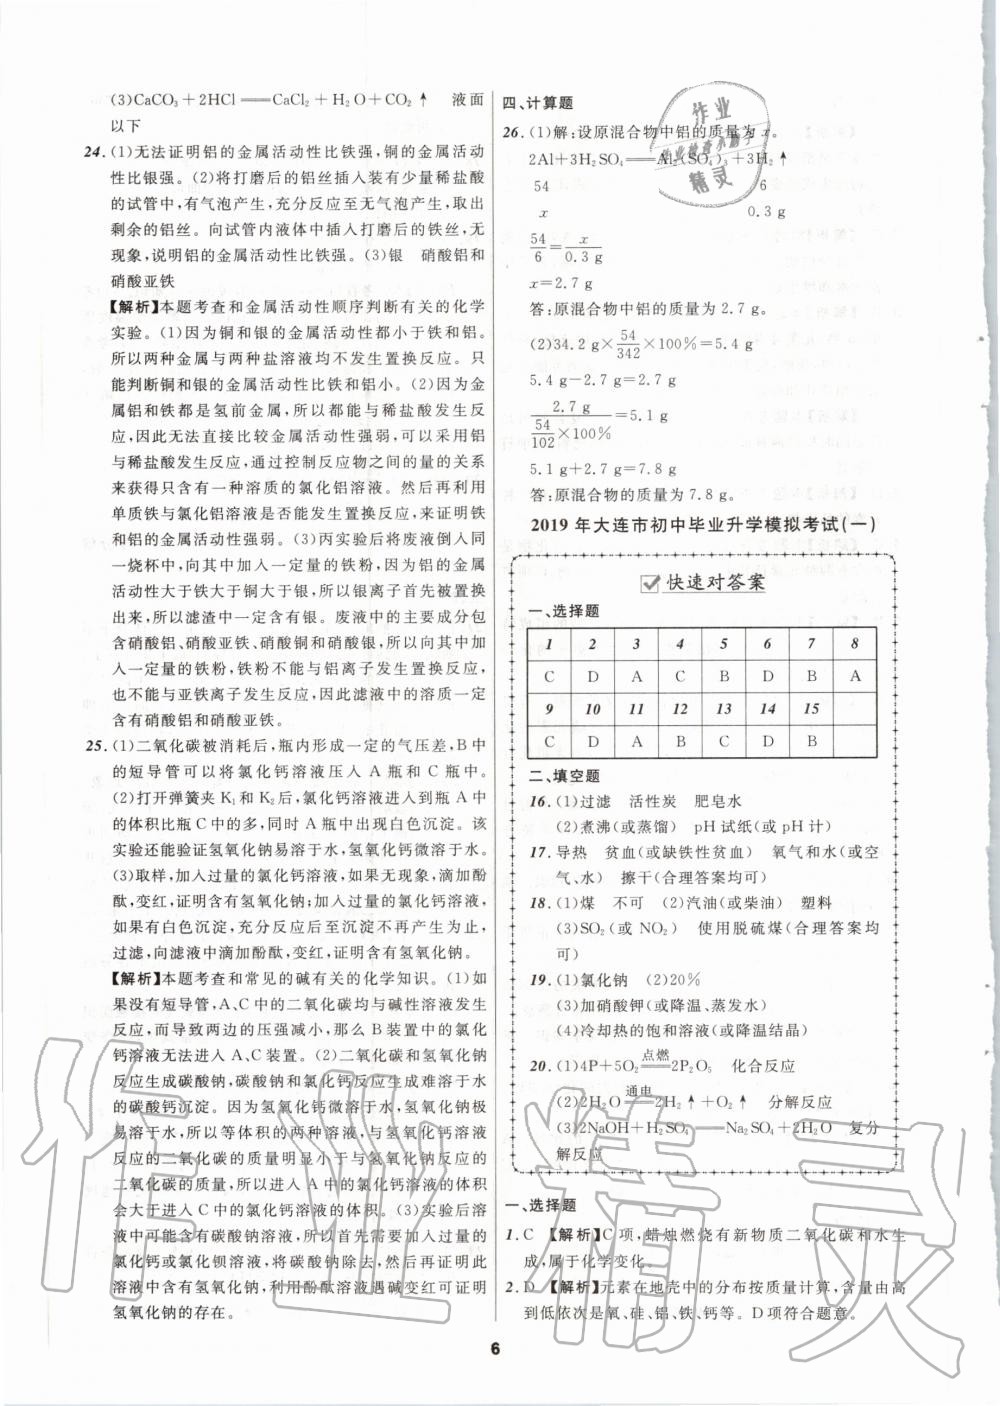 (3)CaCO₃+2HCl══CaCl₂+H₂O+CO₂↑　液面
以下
24.(1)无法证明铝的金属活动性比铁强,铜的金属活动
性比银强。(2)将打磨后的铝丝插入装有少量稀盐酸
的试管中,有气泡产生,充分反应至无气泡产生,取出
剩余的铝丝。向试管内液体中插入打磨后的铁丝,无
现象,说明铝的金属活动性比铁强。(3)银　硝酸铝和
硝酸亚铁
【解析】本题考查和金属活动性顺序判断有关的化学
实验。(1)因为铜和银的金属活动性都小于铁和铝。
所以两种金属与两种盐溶液均不发生置换反应。只
能判断铜和银的金属活动性比铁和铝小。(2)因为金
属铝和铁都是氢前金属,所以都能与稀盐酸发生反
应,因此无法直接比较金属活动性强弱,可以采用铝
与稀盐酸发生反应,通过控制反应物之间的量的关系
来获得只含有一种溶质的氯化铝溶液。然后再利用
单质铁与氯化铝溶液是否能发生反应,来证明铁和铝
的金属活动性强弱。(3)丙实验后将废液倒入同
一烧杯中,并向其中加入一定量的铁粉,因为铝的金属
活动性大于铁大于铜大于银,所以银离子首先被置换
出来,所以滤渣中一定含有银。废液中的主要成分包
含硝酸铝、硝酸亚铁、硝酸铜和硝酸银,所以向其中加
入一定量的铁粉,铁粉不能与铝离子发生置换反应,
也不能与亚铁离子发生反应,因此滤液中的溶质一定
含有硝酸铝和硝酸亚铁。
25.(1)二氧化碳被消耗后,瓶内形成一定的气压差,B中
的短导管可以将氯化钙溶液压入 A 瓶和 C 瓶中。
(2)打开弹簧夹K₁和K₂后,氯化钙溶液进入到瓶 A中
的体积比瓶C中的多,同时 A 瓶中出现白色沉淀。该
实验还能验证氢氧化钠易溶于水,氢氧化钙微溶于水。
(3)取样,加入过量的氯化钙溶液,如果无现象,滴加酚
酞,变红,证明含有氢氧化钠;加入过量的氯化钙溶液,
如果有白色沉淀,充分反应后至沉淀不再产生为止,
过滤,向滤液中滴加酚酞,变红,证明有氢氧化钠。
【解析】本题考查和常见的碱有关的化学知识。(1)如
果没有短导管,A、C中的二氧化碳均与碱性溶液发生
反应,而导致两边的压强减小,那么 B装置中的氯化
钙溶液无法进入A、C装置。(2)二氧化碳和氢氧化钠
反应生成碳酸钠,碳酸钠和氯化钙反应生成难溶于水
的碳酸钙沉淀。因为氢氧化钙微溶于水,氢氧化钠极
易溶于水,所以等体积的两种溶液,与氢氧化钠溶液
反应的二氧化碳的质量明显小于与氢氧化钠反应的
二氧化碳的质量,所以进入 A中的氯化钙溶液的体积
会大于进入C中的氯化钙溶液的体积。(3)实验后溶
液中可能含有碳酸钠,所以首先需要加入过量的氯化
钙或氯化钡溶液,将碳酸钠除去,然后再证明此时的
溶液中含有氢氧化钠,利用酚酞溶液遇碱变红可证明
氢氧化钠的存在。
四、计算题
26.(1)解:设原混合物中铝的质量为 x。
2Al+3H₂SO₄══Al₂(SO₄)₃+3H₂↑
54　6
x　0.3 g
54/6=x/0.3 g
x=2.7 g
答:原混合物中铝的质量为 2.7 g。
(2)34.2 g×54/342×100%=5.4 g
5.4 g-2.7 g=2.7 g
2.7 g/(54/102×100%)=5.1 g
5.1 g+2.7 g=7.8 g
答:原混合物的质量为 7.8 g。
2019 年大连市初中毕业升学模拟考试(一)
快速对答案
一、选择题
1 2 3 4 5 6 7 8
C D A C B D B A
9 10 11 12 13 14 15
C D A B C D B
二、填空题
16.(1)过滤　活性炭　肥皂水
(2)煮沸(或蒸馏)　pH 试纸(或 pH 计)
17.导热　贫血(或缺铁性贫血)　氧气和水(或空
气、水)　擦干(合理答案均可)
18.(1)煤　不可　(2)汽油(或柴油)　塑料
(3)SO₂(或 NO₂)　使用脱硫煤(合理答案均
可)
19.(1)氯化钠　(2)20%
(3)加硝酸钾(或降温、蒸发水)
(4)冷却热的饱和溶液(或降温结晶)
20.(1)4P+5O₂ 点燃══ 2P₂O₅　化合反应
(2)2H₂O 通电══ 2H₂↑+O₂↑　分解反应
(3)2NaOH+H₂SO₄══Na₂SO₄+2H₂O　复分
解反应
一、选择题
1.C　【解析】C 项,蜡烛燃烧有新物质二氧化碳和水生
成,属于化学变化。
2.D　【解析】元素在地壳中的分布按质量计算,含量由高
到低依次是氧、硅、铝、铁、钙等。D项符合题意。
6
作业
精灵
作业精灵